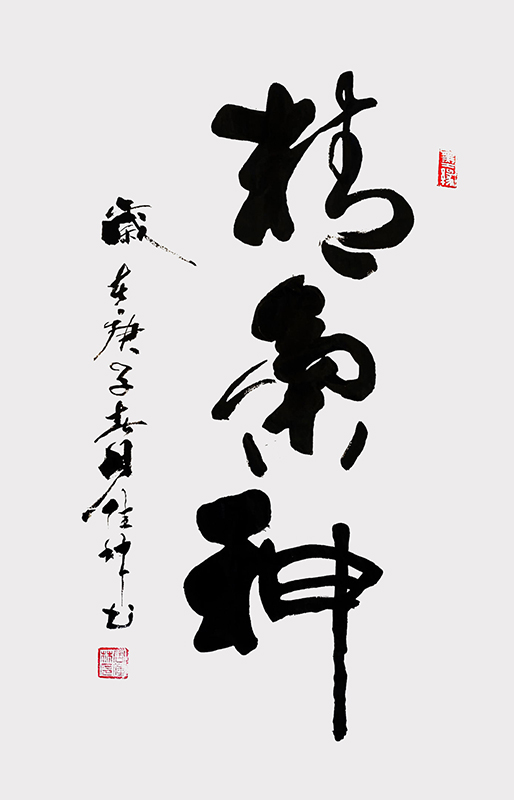 精氣神
歲在庚子春月佳林书